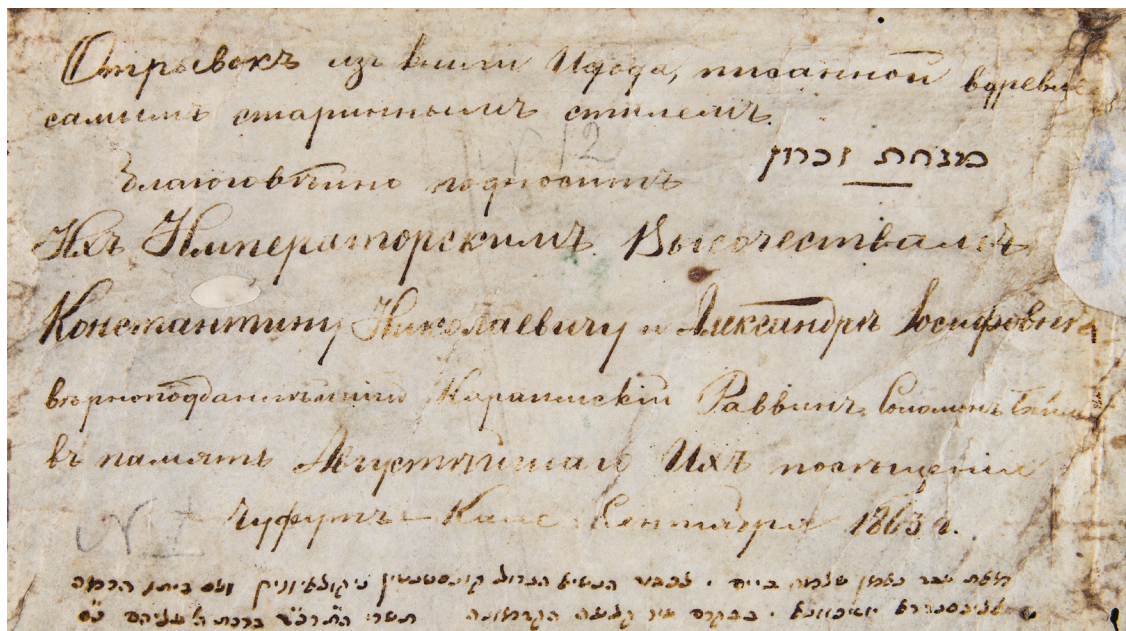 Отрывокъ изъ книги Исхода, писанной вдревле
самымъ стариннымъ стилемъ.
מנחת זכרון
Благоговѣйно подноситъ
Ихъ Императорскимъ Высочествамъ
Константину Николаевичу и Александрѣ Іосифовнѣ
вѣрноподданнѣйшій Караимскій Раввинъ Соломонъ Беймъ
въ память Августѣйшаго Ихъ посѣщенія
Чуфутъ-Кале Сентября 1863 г.
מאת עבד נאמן שלמה ביים . לכבוד הנשיא הגדול קונסטנטין ניקולאיוויץ ועם ביתו הרמה
אלכסנדרא יאסאפאוונא . בבקרם עיר קלעה הקדמונה תשרי